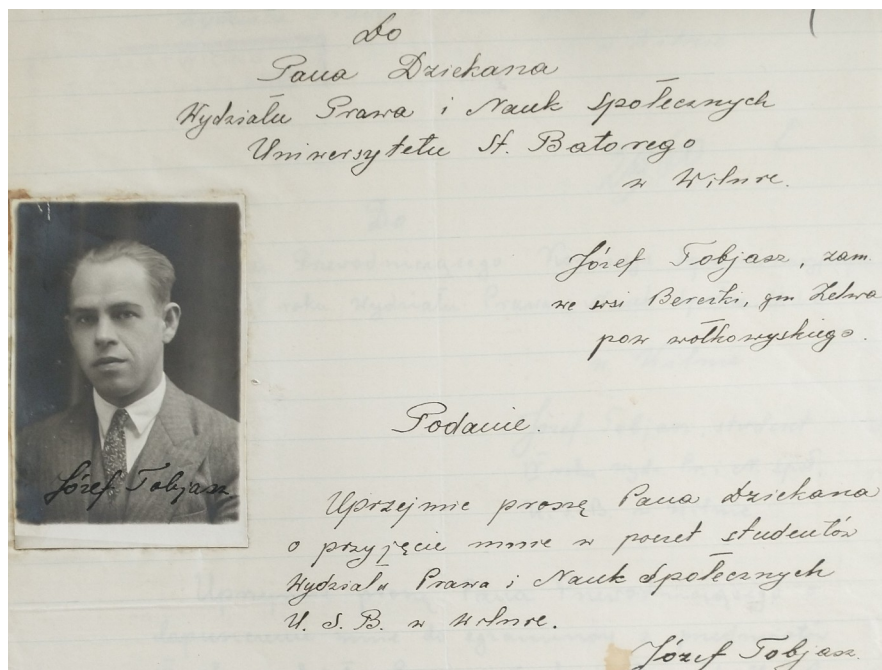 Do
Pana Dziekana
Wydziału Prawa i Nauk Społecznych
Uniwersytetu St. Batorego
w Wilnie.
Józef Tobjasz, zam.
we wsi Bereżki, gm Zelwa
pow wołkowyskiego.
Podanie.
Józef Tobjasz
Uprzejmie proszę Pana Dziekana
o przyjęcie mnie w poczet studentów
Wydziału Prawa i Nauk Społecznych
U. S. B. w Wilnie.
Józef Tobjasz.